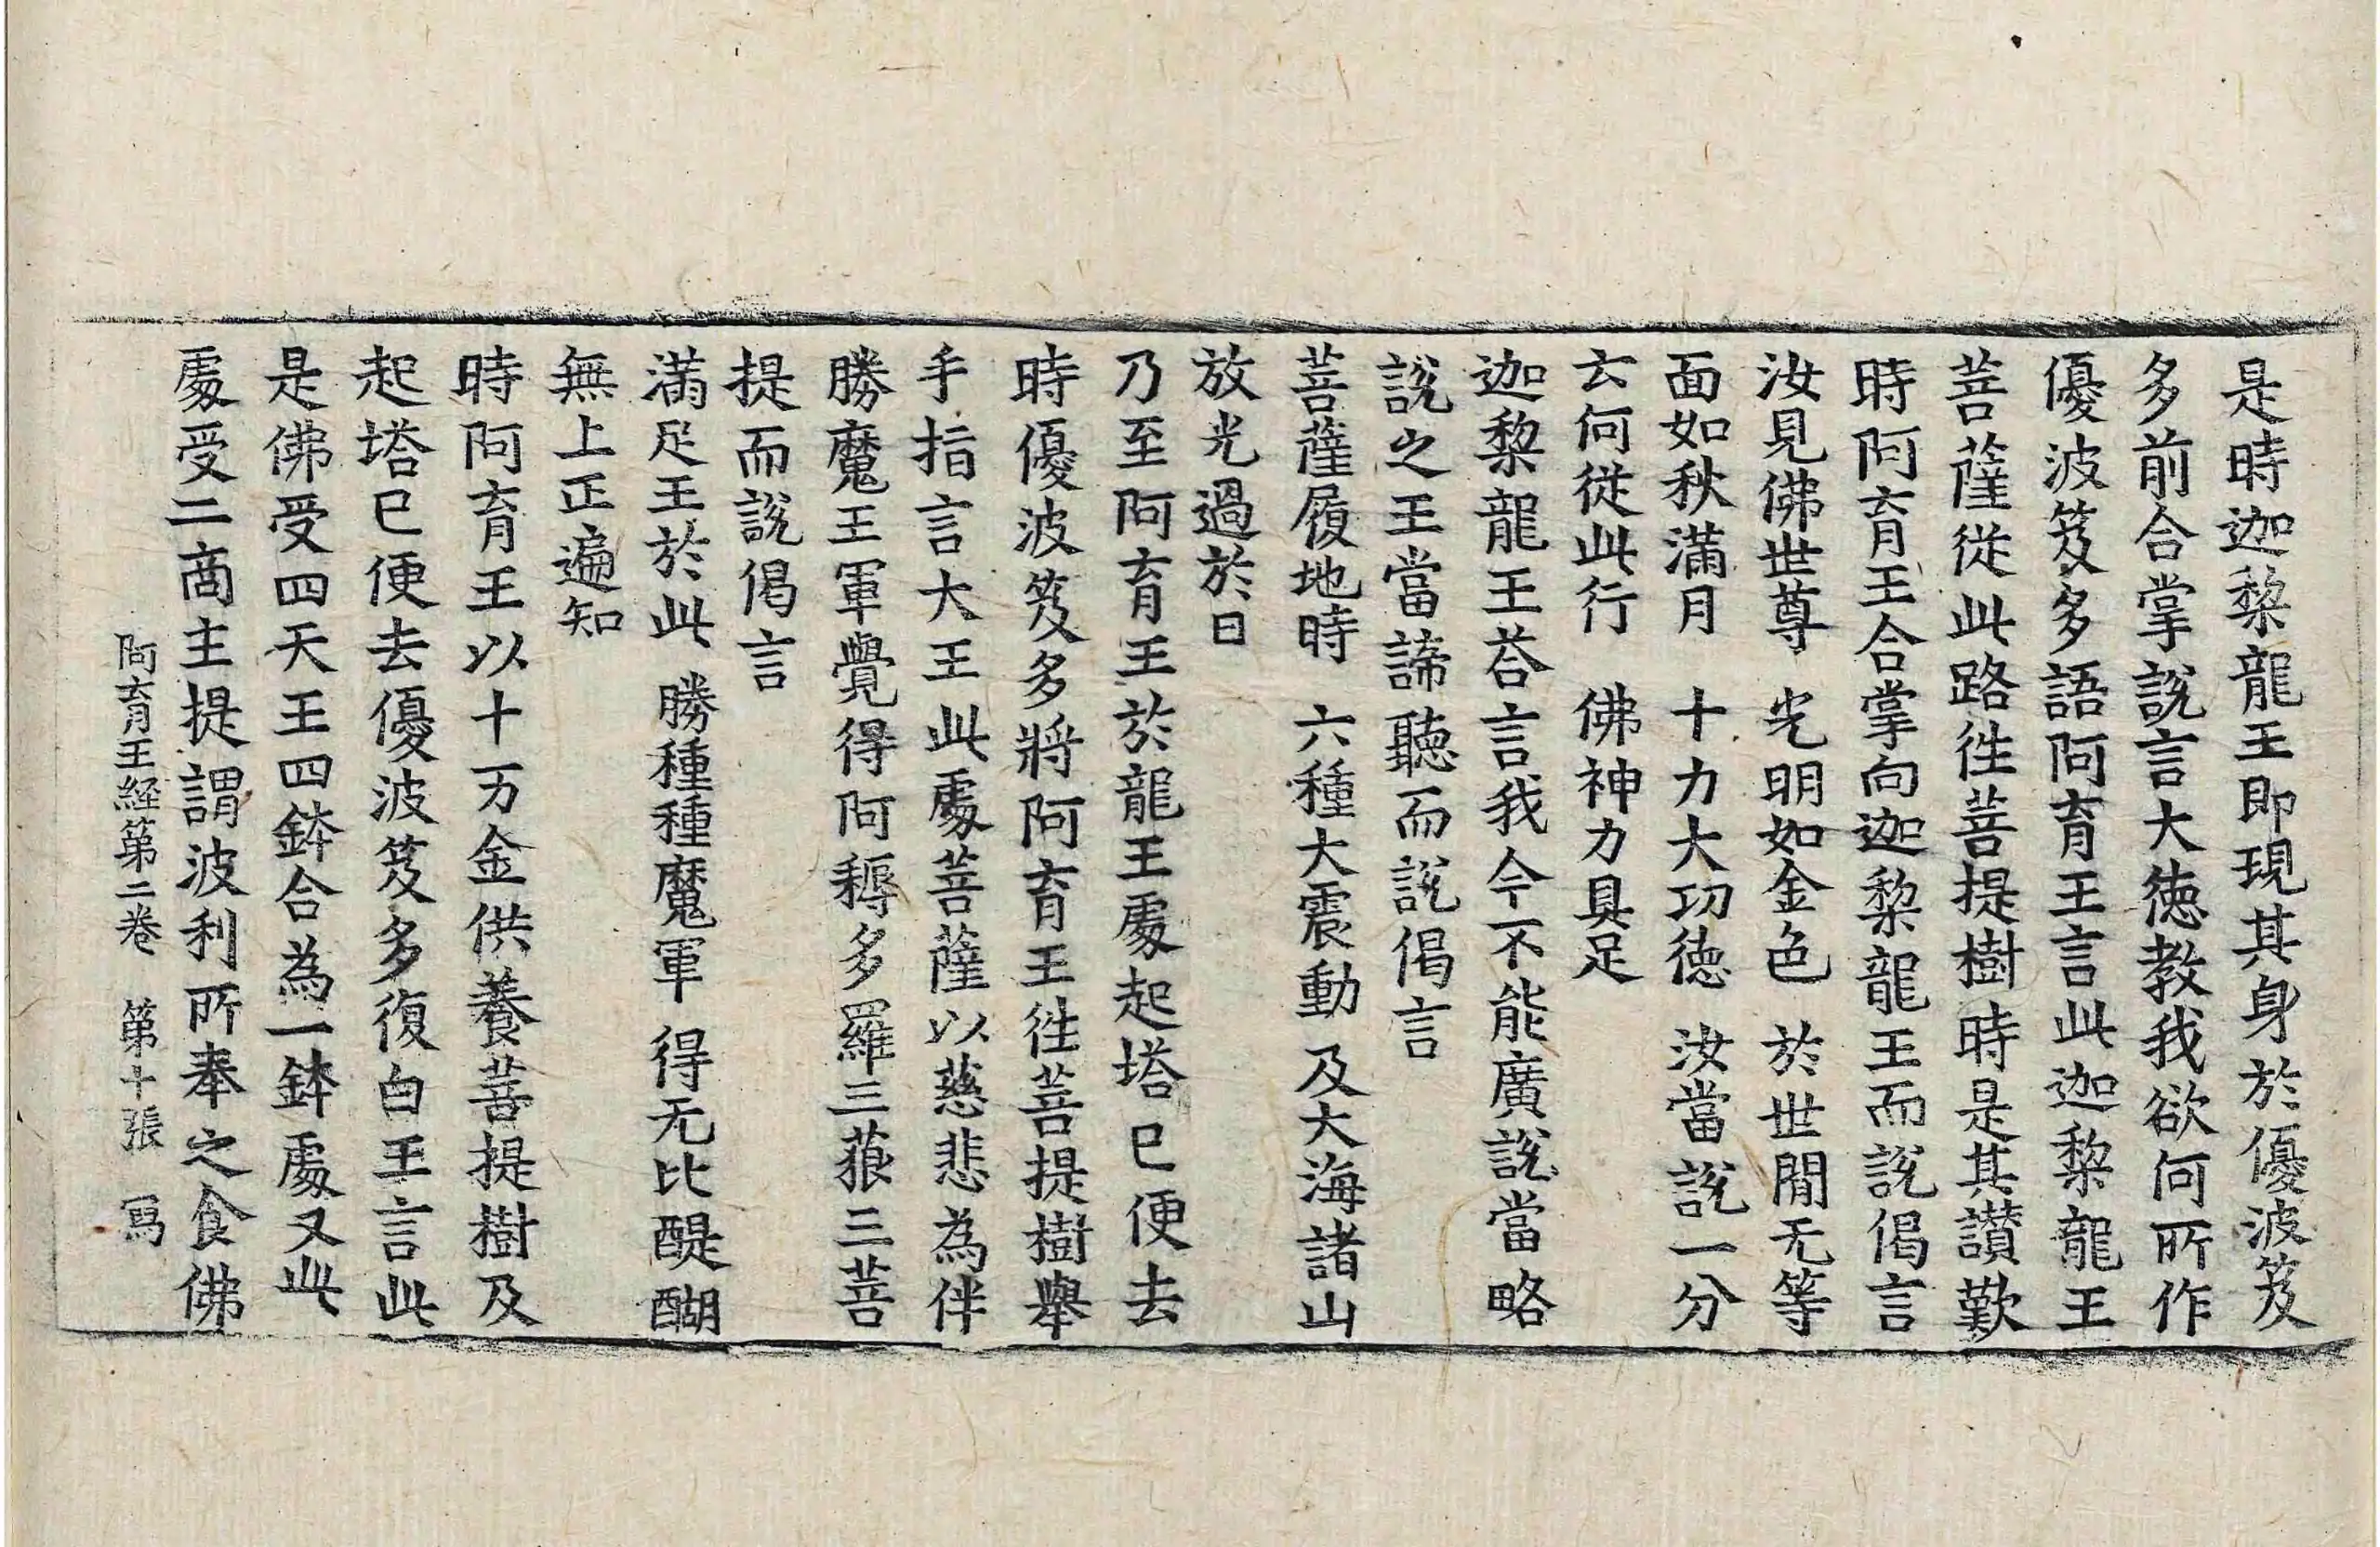 是時迦棃龍王即現其身於優波笈
多前合掌說言大徳教我欲何所作
優波笈多語阿育王言此迦棃龍王
菩薩從此路徃菩提樹時是其讃歎
時阿育王合掌向迦棃龍王而說偈言
汝見佛世尊　光明如金色　於世間无等
面如秋滿月　十力大功徳　汝當說一分
云何從此行　佛神力具足
迦棃龍王荅言我今不能廣說當略
說之王當諦聽而說偈言
菩薩履地時　六種大震動　及大海諸山
放光過於日
乃至阿育王於龍王處起塔已便去
時優波笈多將阿育王徃菩提樹舉
手指言大王此處菩薩以慈悲為伴
勝魔王軍覺得阿耨多羅三藐三菩
提而說偈言
滿足王於此　勝種種魔軍　得无比醍醐
無上正遍知
時阿育王以十万金供養菩提樹及
起塔已便去優波笈多復白王言此
是佛受四天王四鉢合為一鉢處又此
處受二商主提謂波利所奉之食佛
阿育王経第二卷　第十張　寫